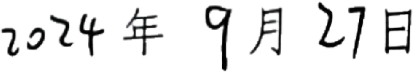 2024年9月27日